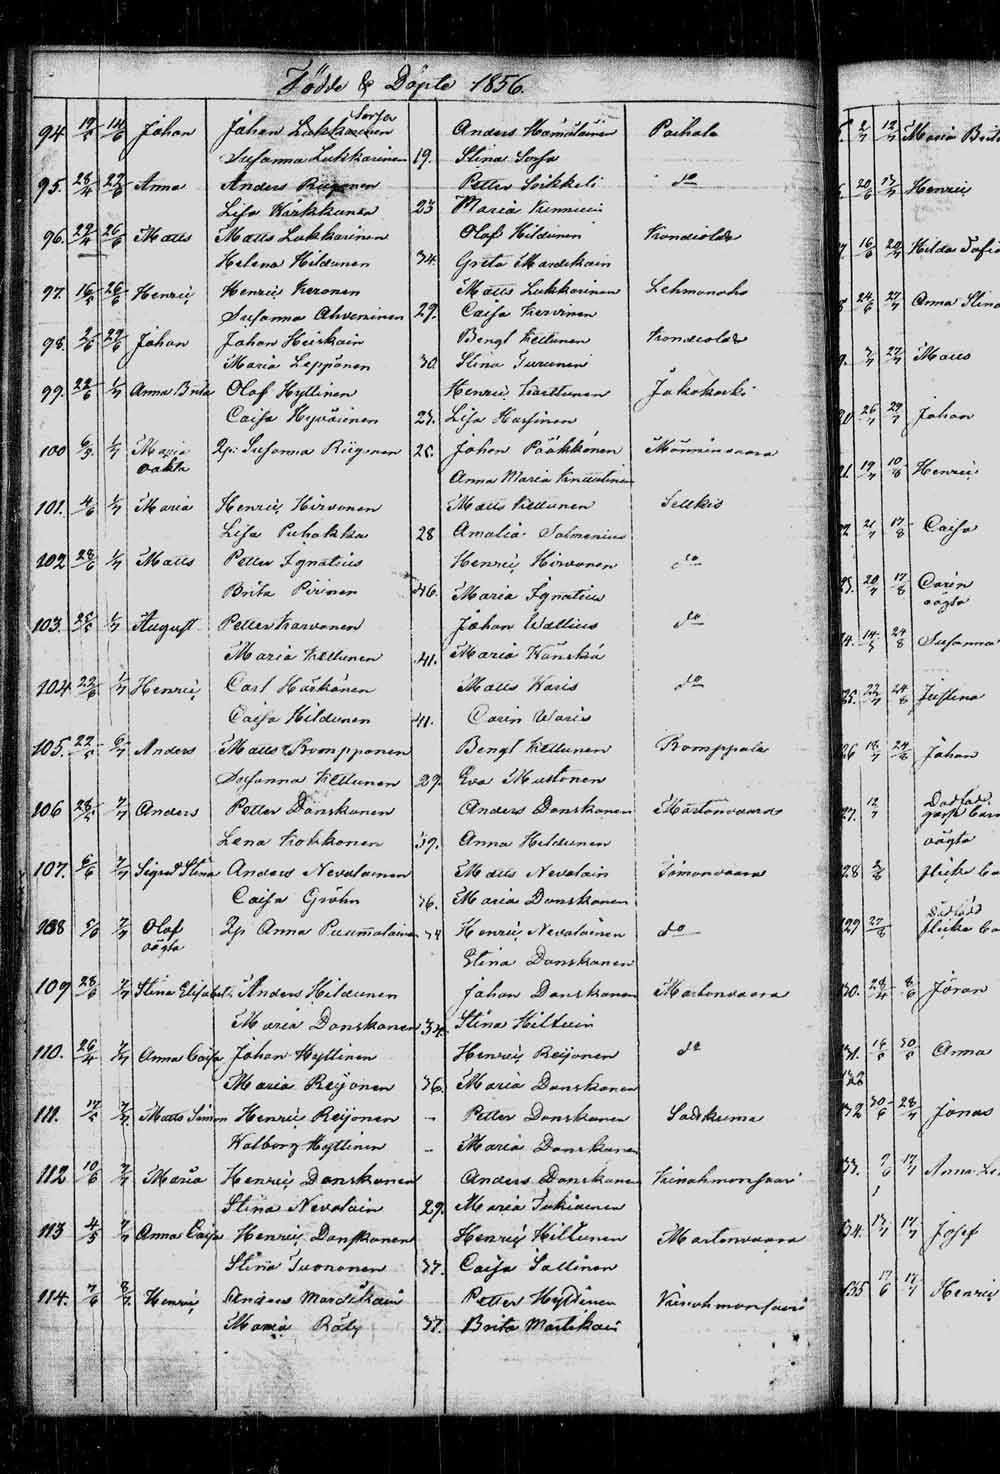 Födde & Döpte 1856.
Sorsa
94 19/5 14/6 Johan Johan Lukkarinen Anders Hämäläinen Paihola
Susanna Lukkarinen 19. Stina Sorsa
95. 28/4 22/6 Anna Anders Petter Soikkeli do
Lisa Karkkunen 23 Maria
96. 29/4 26/6 Matts Matts Lukkarinen Olof Hildunen Kondiolde
Helena Hildunen 34. Greta Mardikain
97. 16/5 26/6 Henric Henric Keronen Matts Lukkarinen Lehmonaho
Susanna Ahveninen 29. Caisa Kervinen
98. 2/6 29/6 Johan Johan Heiskain Bengt Kettunen Kondiolde
Maria Leppänen 30. Stina Turunen
99. 22/6 1/7 Anna Brita Olof Hyttinen Henric Karttunen Jakokoski
Caisa Hyväinen 27. Lisa Karhinen
100 6/5 1/7 Maria Qp: Susanna Riigonen 25. Johan Pääkkönen Mönninvaara
oäkta Anna Maria
101. 4/6 1/7 Maria Henric Hirvonen Matts Kettunen Selkis
Lisa Puhakka 28 Amalia Salmenius
102 28/6 1/7 Matts Petter Ignatius Henric Hirvonen do
Brita Piirinen 46. Maria Ignatius
103. 25/5 1/7 August Petter Karvonen Johan Wallius do
Maria Kettunen 41. Maria Kanska
104 22/6 1/7 Henric Carl Härkönen Matts Waris do
Caisa Hildunen 41. Carin Waris
105. 27/5 6/7 Anders Matts Romppanen Bengt Kettunen Romppala
Susanna Kettunen 29. Eva Mustonen
106 28/5 7/7 Anders Petter Danskanen Anders Danskanen Martonvaara
Lena Kokkonen 39. Anna Hildunen
107. 6/6 7/7 Sigrid Stina Anders Nevalainen Matts Nevalain Timonvaara
Caisa Gröhn 36. Maria Danskanen
108 5/6 7/7 Olof Qp: Anna Puumalainen 34 Henric Nevalainen do
oägta Stina Danskanen
109 28/6 7/7 Stina Elisabet Anders Hildunen Johan Danskanen Martonvaara
Maria Danskanen 34. Stina Hiltuin
110. 26/4 7/7 Anna Caisa Johan Hyttinen Henric Reijonen do
Maria Reijonen 36. Maria Danskanen
111. 17/5 7/7. Matts Simon Henric Reijonen - Petter Danskanen
Walborg Hyttinen - Maria Danskanen
112 10/6 7/7 Maria Henric Danskanen Anders Danskanen
Stina Nevalain 29. Maria Tukiainen
113 4/5 7/7 Anna Caisa Henric Danskanen Henric Hiltunen Martonvaara
Stina Tuononen 37. Caisa Sallinen
114. 7/6 8/7. Henric Anders Mardikain Petter Hyttinen
Maria Räty 37. Brita Martikain
2/7 12/7 Maria Brita
20/6 13/7 Henric
16/6 20/7 Hilda Sofia
24/6 27/7 Anna Stina
3/7 27/7 Matts
26/7 29/7 Johan
19/7 10/8 Henric
21/7 17/8 Caisa
20/7 17/8 Carin
oägta
14/5 24/8 Susanna
22/7 24/8 Justina
18/7 24/8 Johan
12/7 Dödfödd
oägta
28
129 27/8 Dödfödd
30. 29/4 8/6 Jöran
31. Anna
32 30/6 28/7 Jonas
33. 7/6 17/7
34. 13/7 17/7 Josef
135 17/6 17/7 Henric